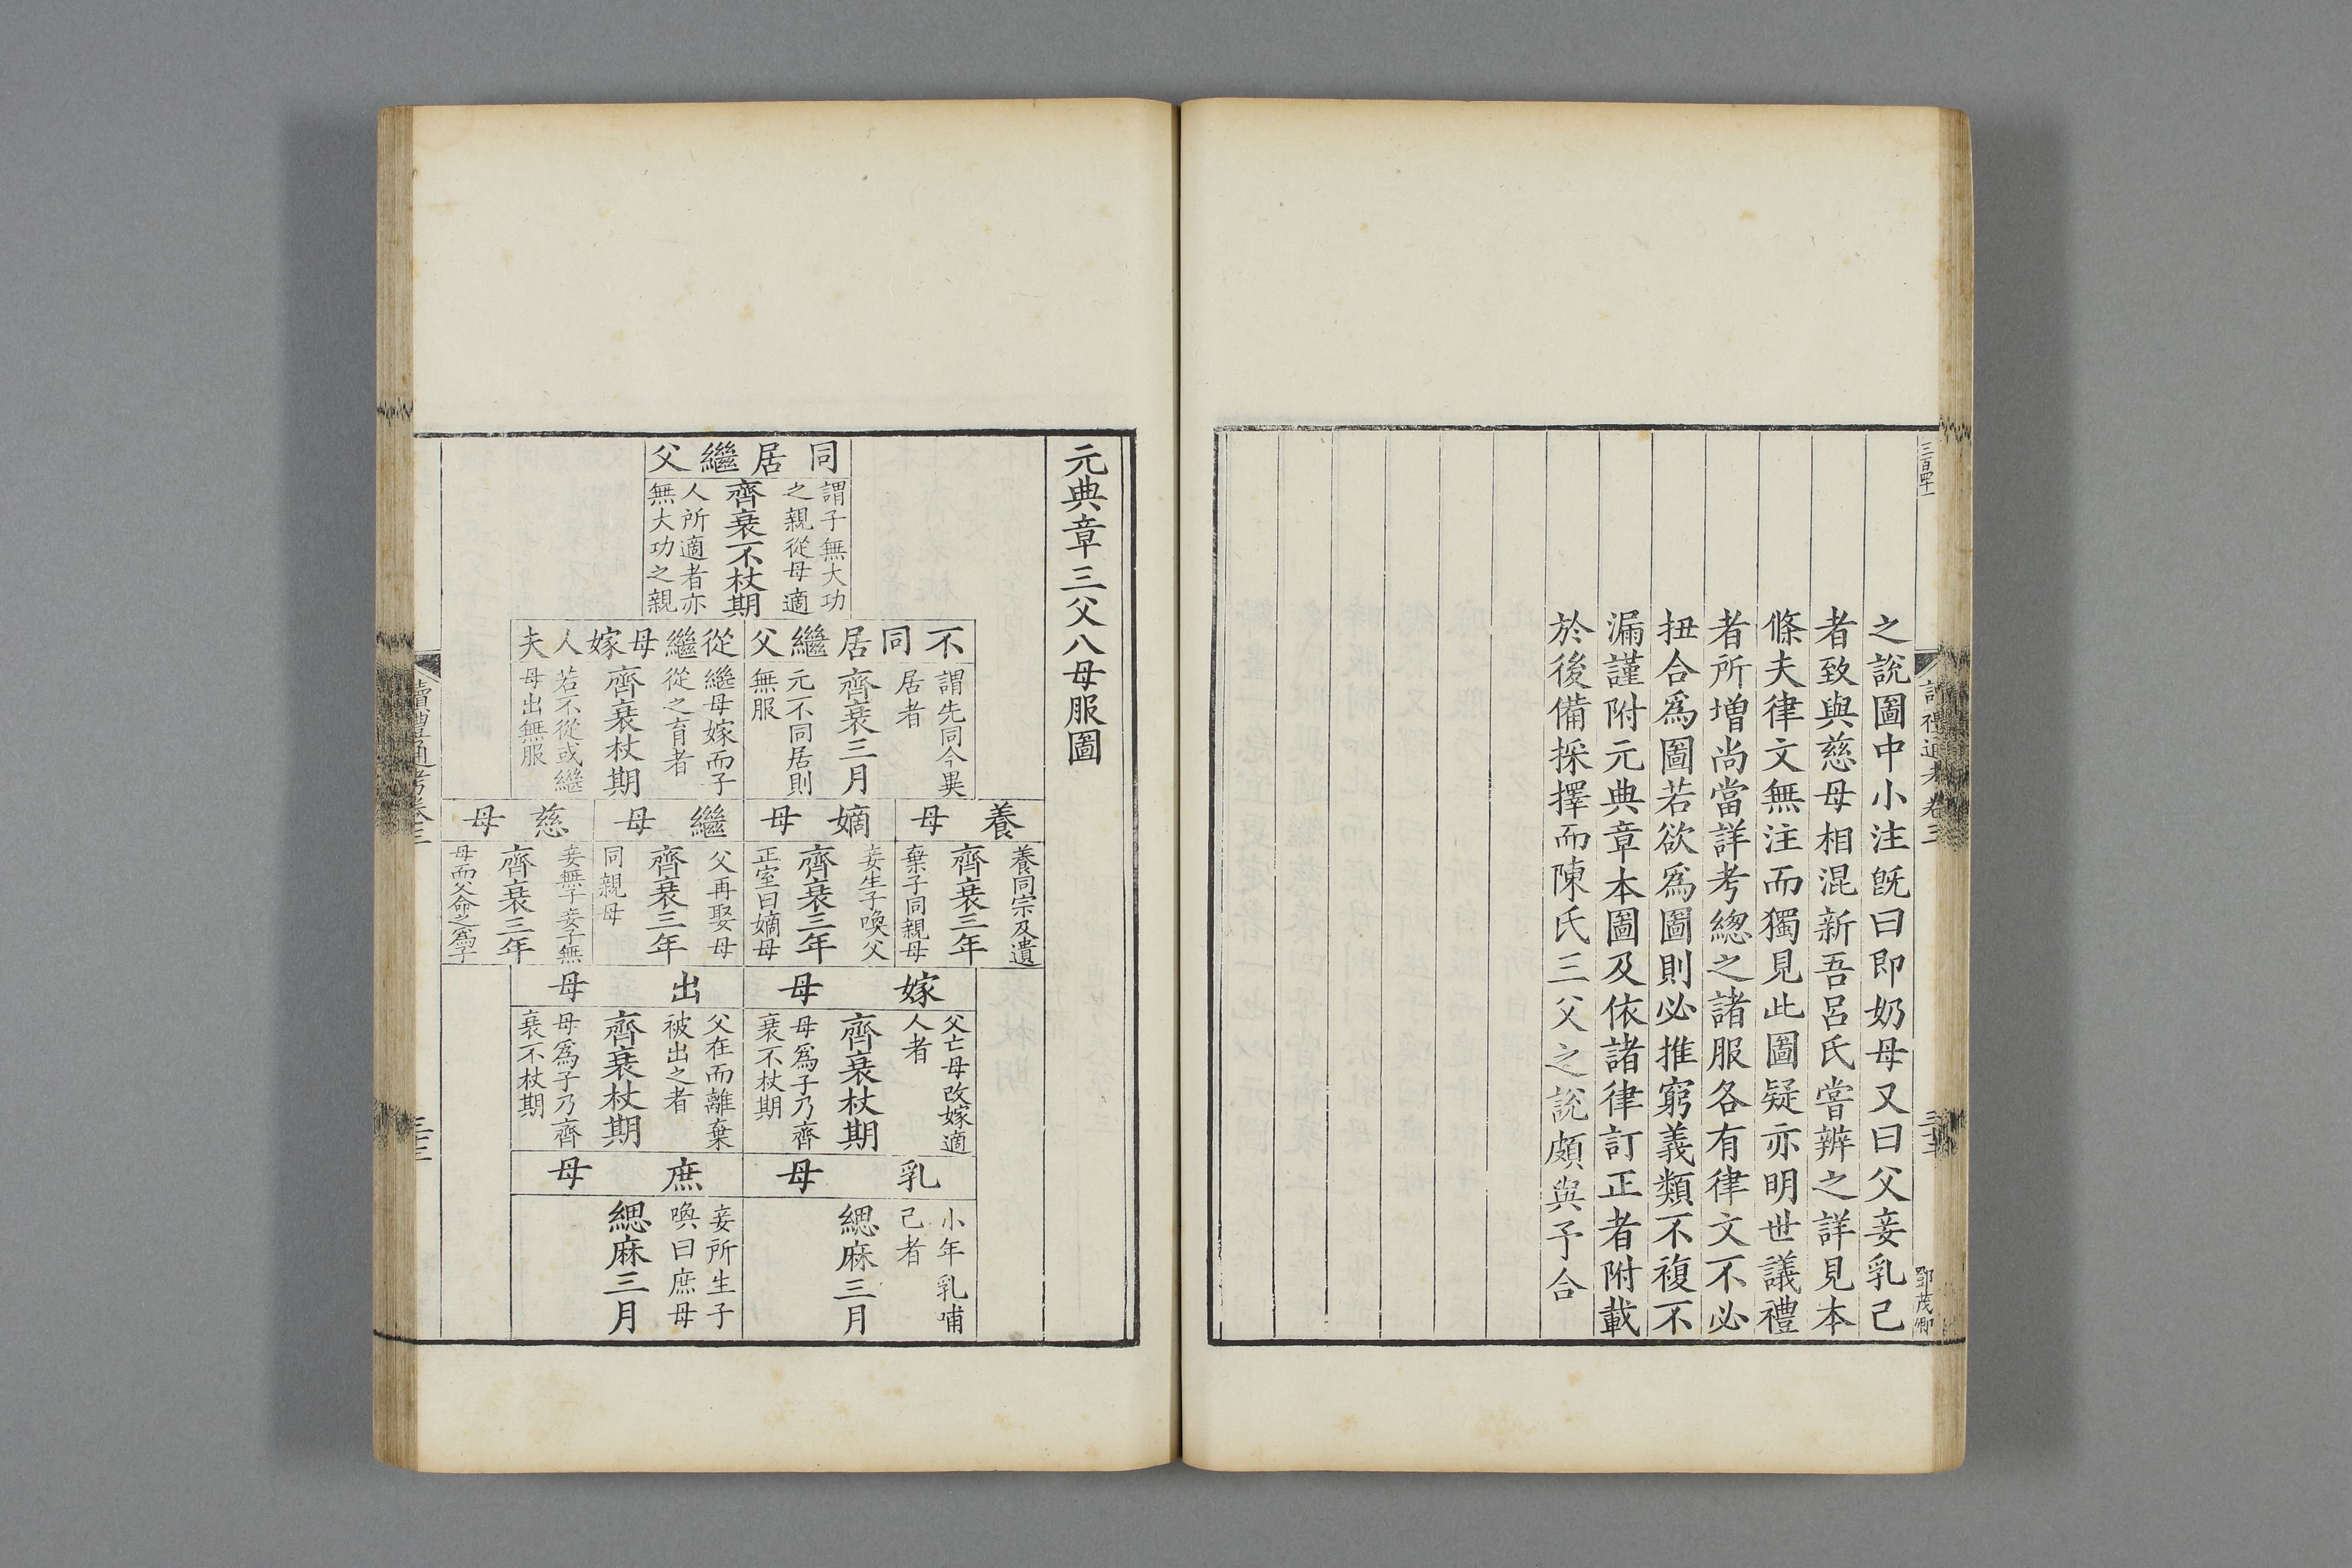 三百四十一
讀禮通考卷三
鄧茂卿
之說圖中小注旣曰即奶母又曰父妾乳己
者致與慈母相混新吾呂氏嘗辨之詳見本
條夫律文無注而獨見此圖疑亦明世議禮
者所增尚當詳考緫之諸服各有律文不必
扭合爲圖若欲爲圖則必推窮義類不複不
漏謹附元典章本圖及依諸律訂正者附載
於後備採擇而陳氏三父之說頗與予合
元典章三父八母服圖
同居繼父
謂子無大功
之親從母適
齊衰不杖期
人所適者亦
無大功之親
不同居繼父
謂先同今異
居者
齊衰三月
元不同居則
無服
從繼母嫁人夫
繼母嫁而子
從之育者
齊衰杖期
若不從或繼
母出無服
養母
養同宗及遺
齊衰三年
棄子同親母
嫡母
妾生子喚父
齊衰三年
正室曰嫡母
繼母
父再娶母
齊衰三年
同親母
慈母
妾無子妾子無
齊衰三年
母而父命之爲子
嫁母
父亡母改嫁適
人者
齊衰杖期
母爲子乃齊
衰不杖期
出母
父在而離棄
被出之者
齊衰杖期
母爲子乃齊
衰不杖期
乳母
小年乳哺
己者
緦麻三月
庶母
妾所生子
喚曰庶母
緦麻三月
讀禮通考卷三